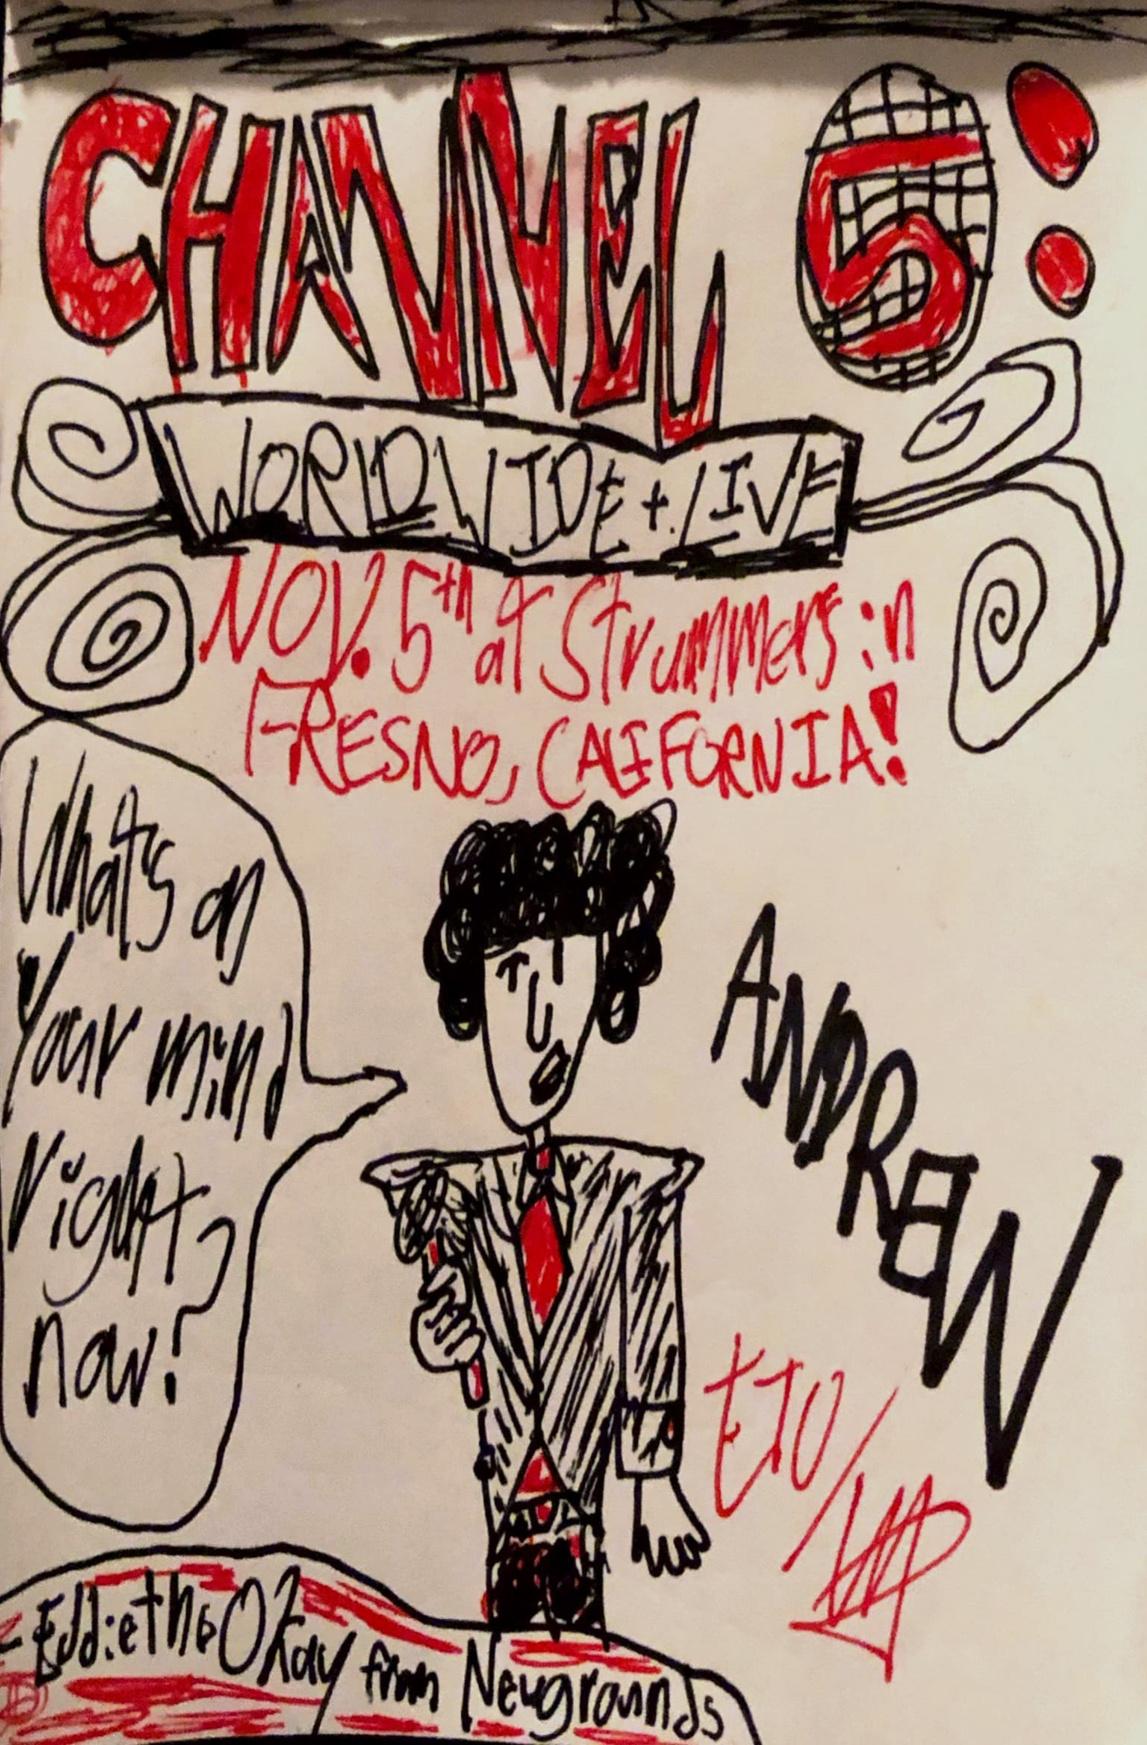 CHANNEL 5:
WORLDWIDE + LIVE
NOV. 5th at Strummers in
FRESNO, CALIFORNIA!
What's on
Your mind
right
now?
ANDREW
ETO/
Eddie the Okay from Newgrounds